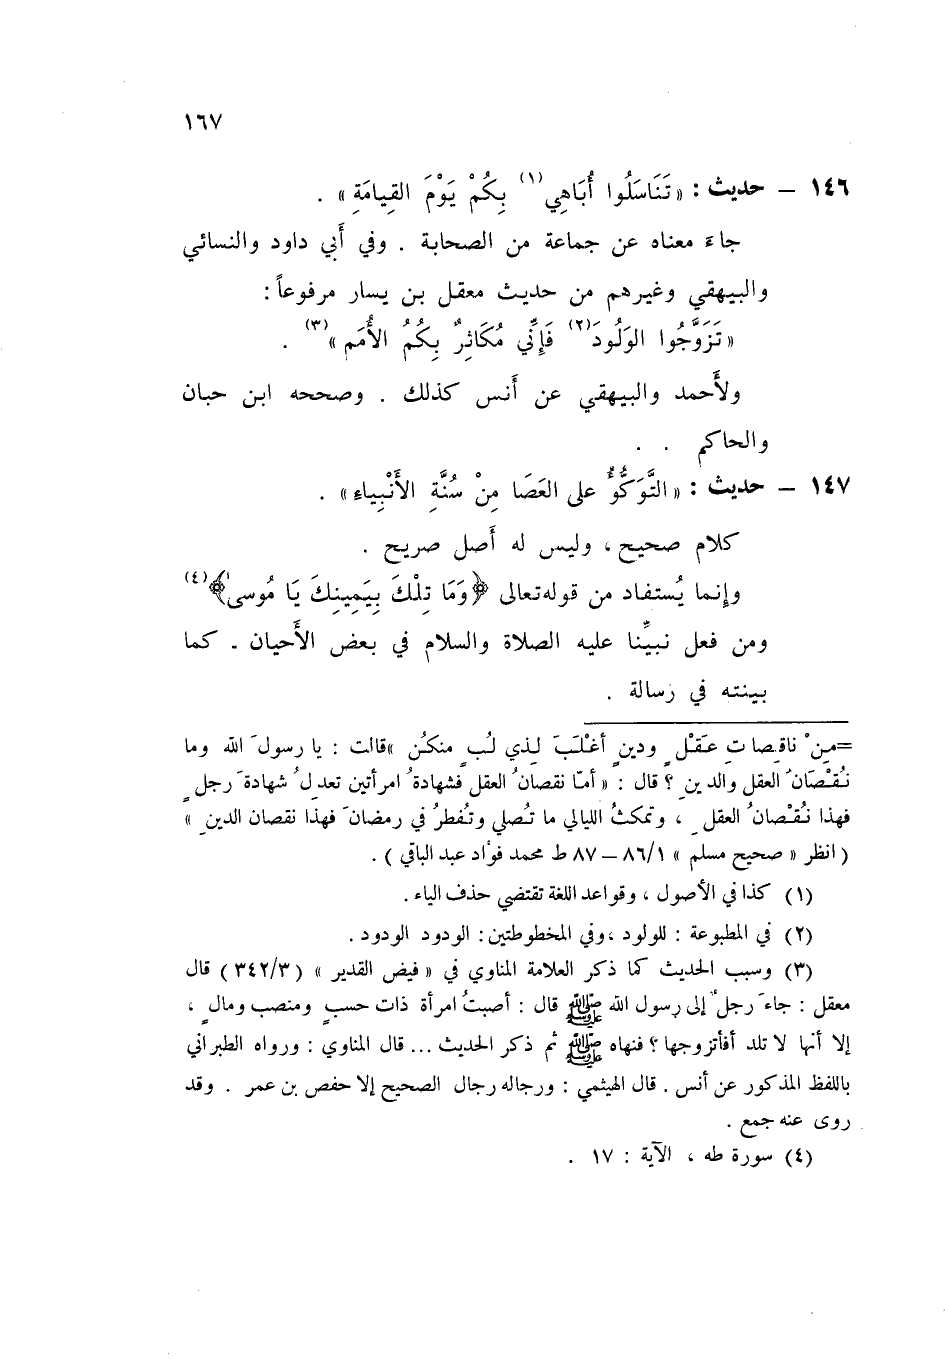 ١٦٧
١٤٦ – حديث : « تَنَاسَلُوا أُبَاهِي(١) بِكُمْ يَوْمَ القِيامَةِ » .
جاءَ معناه عن جماعة من الصحابة . وفي أَبي داود والنسائي
والبيهقي وغيرهم من حديث معقل بن يسار مرفوعاً :
« تَزَوَّجُوا الوَلُودَ(٢) فَإِنِّي مُكَاثِرٌ بِكُمُ الأُمَمِ »(٣) .
ولأَحمد والبيهقي عن أَنس كذلك . وصححه ابن حبان
والحاكم . .
١٤٧ – حديث : « التَّوَكُّؤُ على العَصَا مِنْ سُنَّةِ الأَنْبِياء » .
كلام صحيح ، وليس له أَصل صريح .
وإنما يُستفاد من قوله تعالى ﴿وَمَا تِلْكَ بِيَمِينِكَ يَا مُوسىٰ﴾(٤)
ومن فعل نبيِّنا عليه الصلاة والسلام في بعض الأَحيان . كما
بينته في رسالة .
=مِنْ ناقصاتِ عَقْلٍ ودينٍ أَغْلَبَ لِذي لُبٍ منكُن » قالت : يا رسولَ الله وما
نُقْصَانُ العقل والدينِ ؟ قال : « أمّا نقصانُ العقل فشهادةُ امرأتين تعدلُ شهادةَ رجلٍ
فهذا نُقْصانُ العقلِ ، وتمكثُ الليالي ما تُصلي وتُفطرُ في رمضانَ فهذا نقصان الدينِ »
( انظر « صحيح مسلم » ٨٦/١ – ٨٧ ط محمد فؤاد عبد الباقي ) .
(١) كذا في الأصول ، وقواعد اللغة تقتضي حذف الياء .
(٢) في المطبوعة : للولود ، وفي المخطوطتين : الودود الودود .
(٣) وسبب الحديث كما ذكر العلامة المناوي في « فيض القدير » ( ٣٤٢/٣ ) قال
معقل : جاءَ رجلٌ إلى رسول الله ﷺ قال : أصبتُ امرأة ذات حسبٍ ومنصب ومالٍ ،
إلا أنها لا تلد أفأتزوجها ؟ فنهاه ﷺ ثم ذكر الحديث ... قال المناوي : ورواه الطبراني
باللفظ المذكور عن أنس . قال الهيثمي : ورجاله رجال الصحيح إلا حفص بن عمر . وقد
روى عنه جمع .
(٤) سورة طه ، الآية : ١٧ .